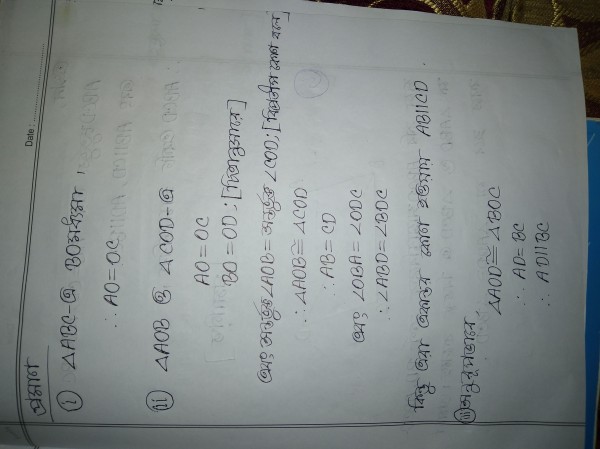 Date :
প্রমাণ
(i) ΔABC-এ BO মধ্যমা ।
∴ AO = OC
(ii) ΔAOB ও ∠COD-এ
AO = OC
BO = OD ; [চিত্রানুসারে]
এবং অন্তর্ভুক্ত ∠AOB = অন্তর্ভুক্ত ∠COD ; [বিপ্রতীপ কোণ বলে]
∴ ΔAOB ≅ ∠COD
∴ AB = CD
এবং ∠OBA = ∠ODC
∴ ∠ABD = ∠BDC
কিন্তু এরা একান্তর কোণ হওয়ায় AB||CD
(iii) অনুরূপভাবে
ΔAOD ≅ ∠BOC
∴ AD = BC
∴ AD||BC